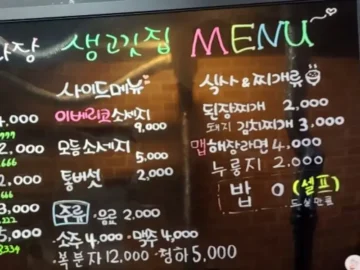 생고깃집 MENU
사이드메뉴
이베리코소세지
9,000
모듬소세지
5,000
통버섯 2,000
주류 · 음료 2,000
· 소주 4,000 · 맥주 4,000
· 복분자 12,000 · 청하 5,000
식사 & 찌개류
된장찌개 2,000
돼지 김치찌개 3,000
맵 해장라면 4,000
누룽지 2,000
밥 0 (셀프)
드실만큼
,000
2,000
2,000
3,000
5,000